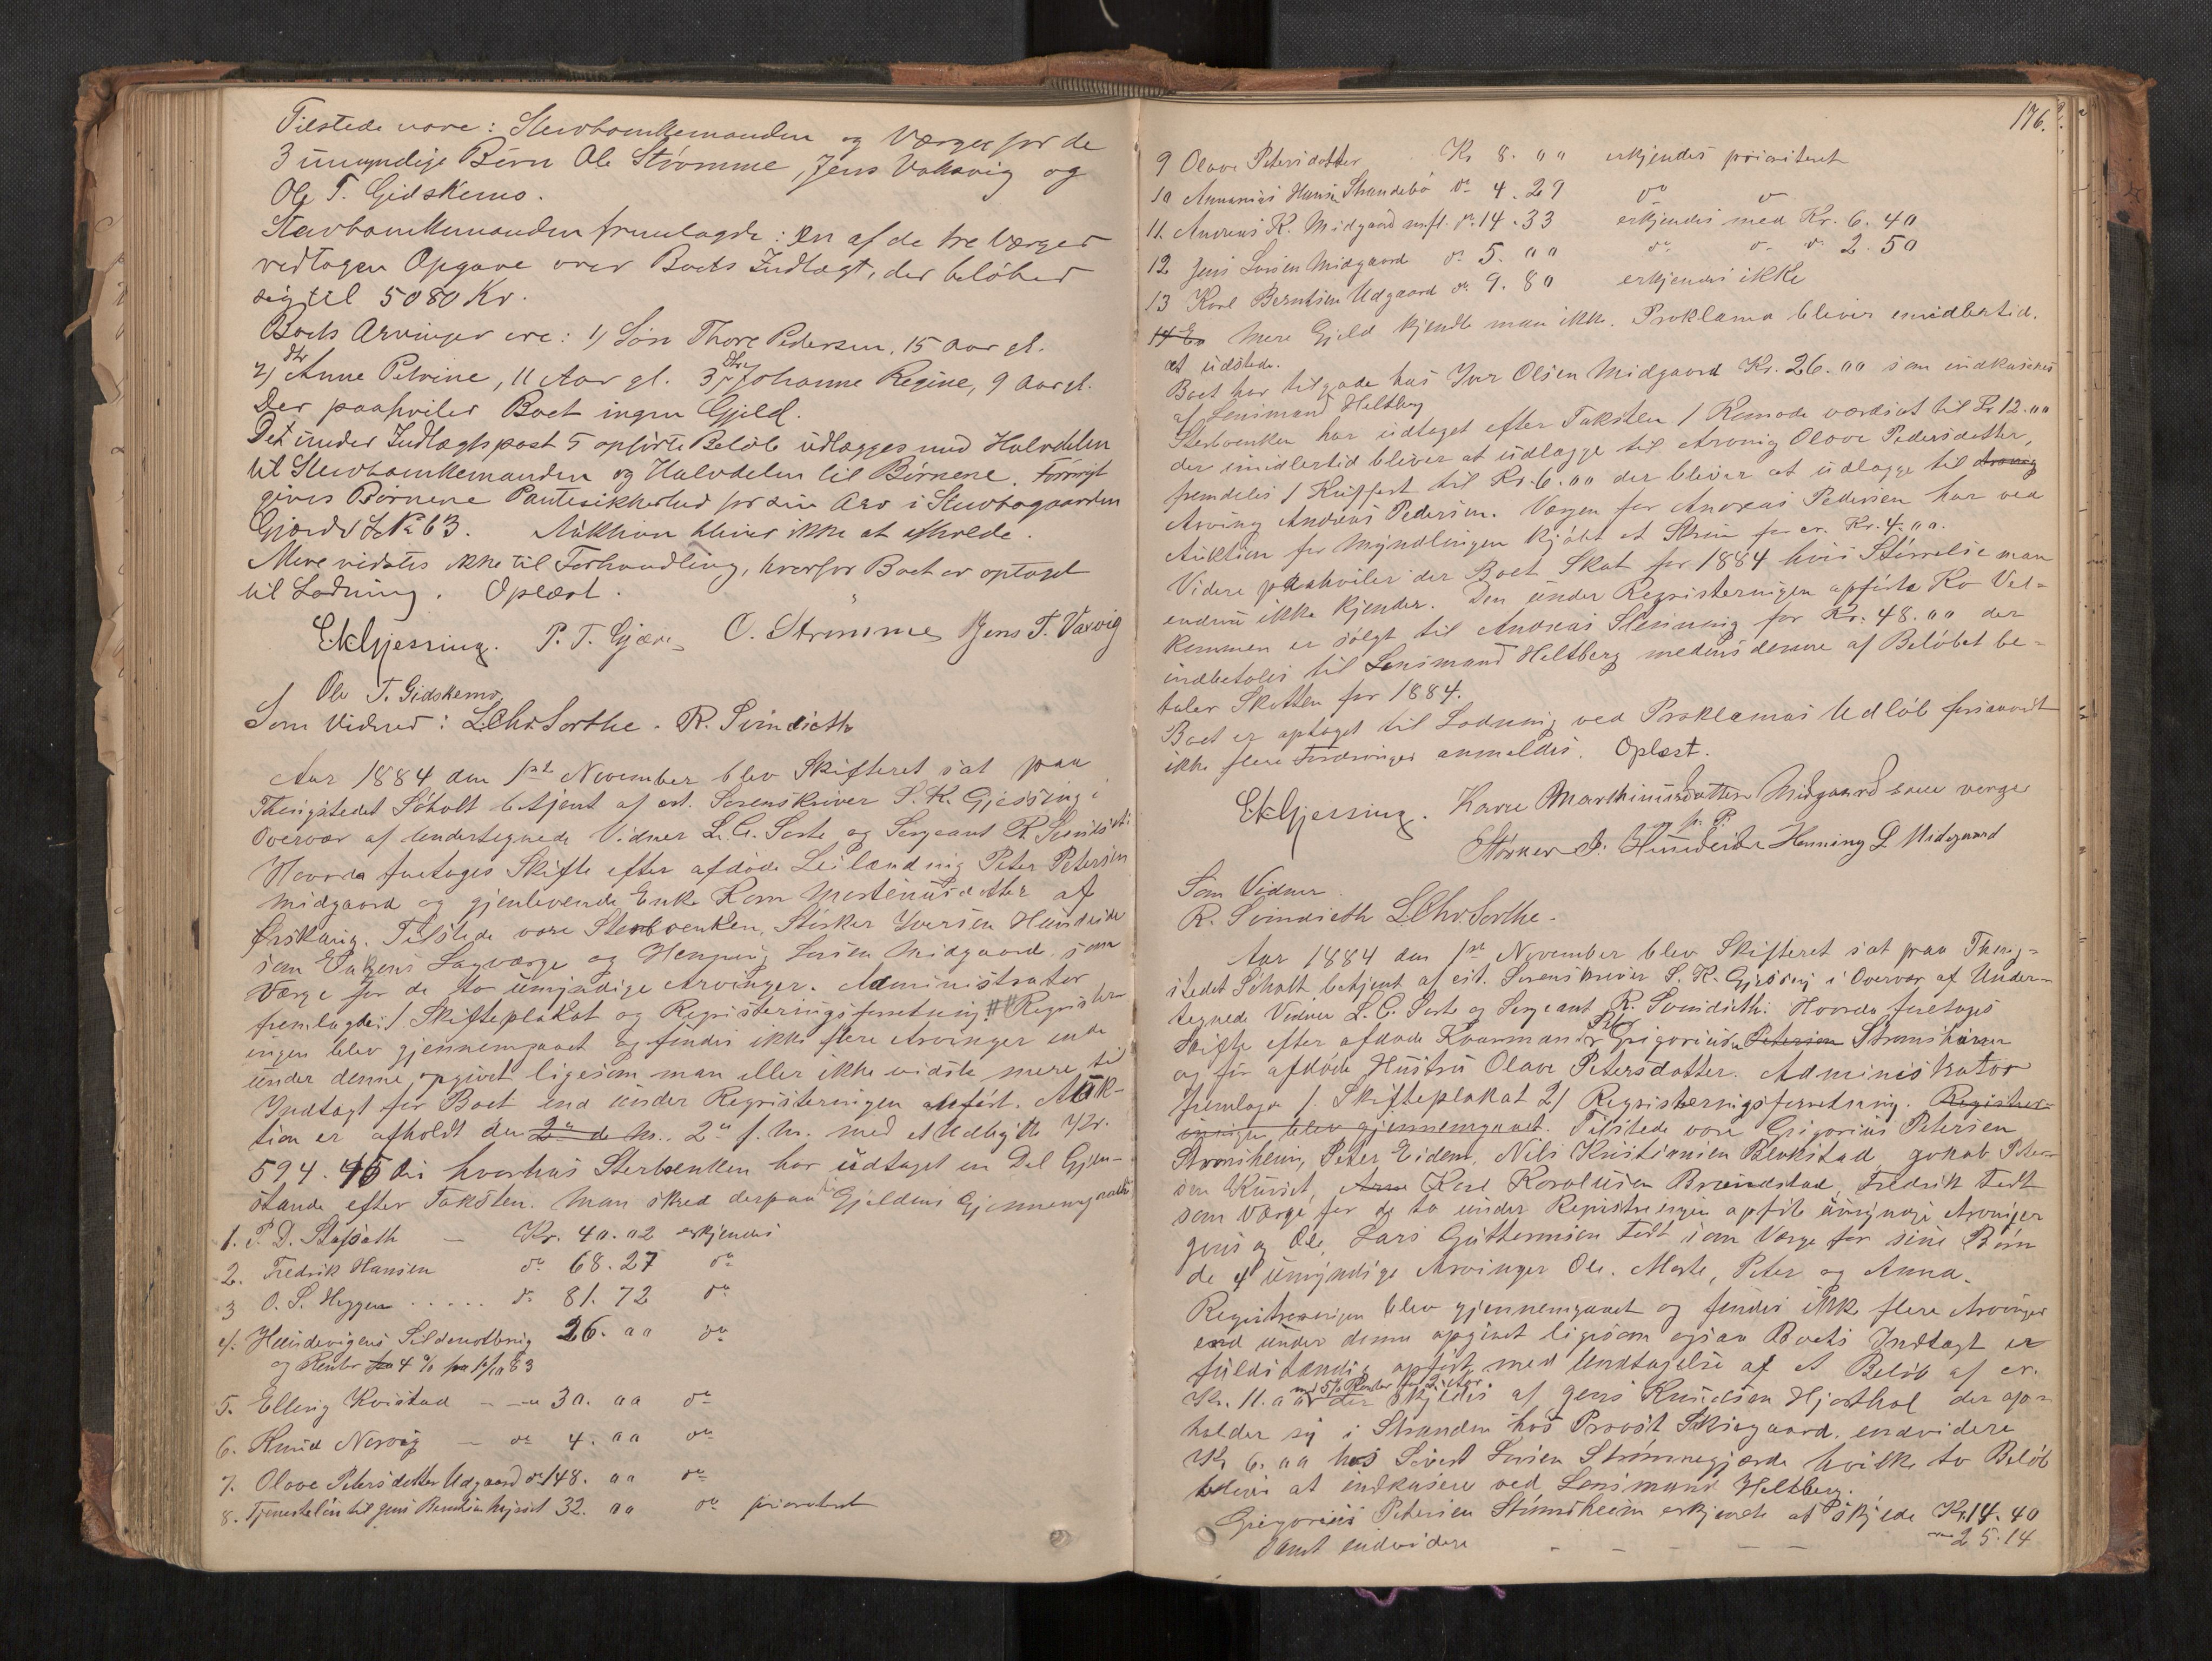 Tilstede vare: Stervboenkemanden og Værger for de
3 umyndige Børn Ole Strømme, Jens Vaksvig og
Ole T. Gidskemo.
Stervboenkemanden fremlagde: En af de tre Værger
vedtagen Opgave over Boets Indtægt, der beløber
sig til 5080 Kr.
Boets Arvinger ere: 1) Søn Thore Pedersen, 15 Aar gl.
2) Dtr Anne Petrine, 11 Aar gl. 3) Dtr Johanne Regine, 9 Aar gl.
Der paahviler Boet ingen Gjeld.
Det under Indtægtspost 5 opførte Beløb udlægges med Halvdelen
til Stervboenkemanden og Halvdelen til Børnene. Forøvrigt
gives Børnene Pantesikkerhed for sin Arv i Stervbogaarden
Gjærde L No 63. Auktion bliver ikke at afholde.
Mere vidstes ikke til Forhandling, hvorfor Boet er optaget
til Lodning. Oplæst.
E.K.Gjessing. P. T. Gjære O. Strømme Jens T. Vaxvig
Ole T. Gidskemo.
Som Vidner: L.Chr.Sorthe. R. Svindseth
Aar 1884 den 1ste November blev Skifteret sat paa
Thingstedet Søholt betjent af cst. Sorenskriver S. K. Gjessing i
Overvær af Undertegnede Vidner L. C. Sorte og Sergeant R. Svindseth:
Hvorda foretoges Skifte efter afdøde Leilænding Peter Petersen
Midgaard og gjenlevende Enke Karn Martenusdatter af
Ørskoug. Tilstede vare Sterboenken, Størker Iversen Hundeide
som Enkens Lagværge og Henning Larsen Midgaard som
Værge for de to umyndige Arvinger. Administrator
fremlagde: 1 Skifteplakat og Registeringsforretning. # # Register-
ingen blev gjennemgaaet og findes ikke flere Arvinger end
under denne opgivet ligesom man eller ikke vidste mere til
Indtægt for Boet end under Registeringen anført. Auk-
tion er afholdt den 2en de M.. 2en f. M. med et Udbytte Kr.
594. 45 Øre hvorhos Sterboenken har udtaget en Del Gjen-
stande efter Taksten. Man skred derpaa til Gjeldens Gjennemgaaelse
1. P. D. Stafsæth — Kr. 40. 02 erkjendes
2. Fredrik Hansen do 68. 27 do
3 O. S. Heggen ..... do 81. 72 do
4. Hundevigens Sildenotbrug 26. 00 do
og Renter fra 4 % fra 1/10 83
5. Elling Kvistad — - 30. 00 do
6. Knud Nervig — do 4. 00 do
7. Olave Petersdatter Udgaard do 148. 00 do
8. Tjenesteløn til Jens Berntsen 32. 00 do prioriteret
176.
9 Olave Petersdatter Kr 8. 00 erkjendes prioriteret
10 Annanias Hansen Strandebø do 4. 29 do do
11. Andreas K. Midgaard m.fl. do 14. 33 erkjendes med Kr. 6. 40
12 Jens Larsen Midgaard do 5. 00 do do do 2. 50
13 Karl Berntsen Udgaard do 9. 80 erkjendes ikke
14 En Mere Gjeld kjendte man ikke. Proklama bliver imidlertid.
at udstede.
Boet har tilgode hos Iver Olsen Midgaard Kr. 26. 00 som indkaseres
af Lensmand Heltberg
Sterboenken har udtaget efter Taksten 1 Komode værdsat til Kr 12. 00
der imidlertid bliver at udlægge til Arving Olave Pedersdatter,
fremdeles 1 Kuffert til Kr. 6. 00 der bliver at udlægge til Arving
Arving Andreas Pedersen. Værgen for Andreas Pedersen har ved
Auktion for Myndlingen kjøbt et Skrin for cr. Kr. 4. 00.
Videre paahviler der Boet Skat for 1884 hvis Størrelse man
endnu ikke kjender. Den under Registeringen opførte Ko Vel-
kommen er solgt til Andreas Slemning for Kr. 48. 00 der
indbetales til Lensmand Heltberg medens denne af Beløbet be-
taler Skatten for 1884.
Boet er optaget til Lodning ved Proklamas Udløb forsaavidt
ikke flere Fordringer anmeldes. Oplæst.
E.K.Gjessing. Karn Marthinusdatter Midgaard som verge
m. f. P.
Størker I. Hundeide Henning L Midgaard
Som Vidner
R. Svindseth L.Chr.Sorthe.
Aar 1884 den 1ste November blev Skifteret sat paa Thing-
stedet Søholt betjent af cst. Sorenskriver S. K. Gjessing i Overvær af Under-
tegnede Vidner L. C. Sorte og Sergeant R. Svindseth: Hvorda foretoges
Skifte efter afdøde Kaarmand Grigorius Petersen Strømsheim
og før afdøde Hustru Olave Petersdatter. Administrator
fremlagde 1. Skifteplakat 2) Registeringsforretning. Register-
ingen blev gjennemgaaet. Tilstede vare Grigorius Petersen
Strømsheim, Peter Eidem, Nils Kristiansen Blakstad, Jakob Peter-
sen Kurset, Arne Karl Karolusen Brundstad, Fredrik Tedt
som Værge for de to under Registreringen opførte umyndige Arvinger
Jens og Ole, Lars Guttormsen Tedt som Værge for sine Børn
de 4 umyndige Arvinger Ole. Marte, Peter og Anna.
Registreringen blev gjennemgaaet og findes ikke flere Arvinger
end under denne opgivet ligesom ogsaa Boets Indtægt er
fuldstændig opført med Undtagelse af et Beløb af cr.
med 5% Renter for 2 Aar
Kr. 11. 00 der skyldes af Jens Knudsen Hjorthol der op-
holder sig i Stranden hos Provst Saksegaard, endvidere
Kr 6. 00 hos Sivert Larsen Strømmegjærde hvilke to Beløb
bliver at indkasere ved Lensmand Heltberg.
Gregorius Petersen Strømsheim erkjendte at skylde Kr. 14. 40
samt endvidere — — — — — 25. 14